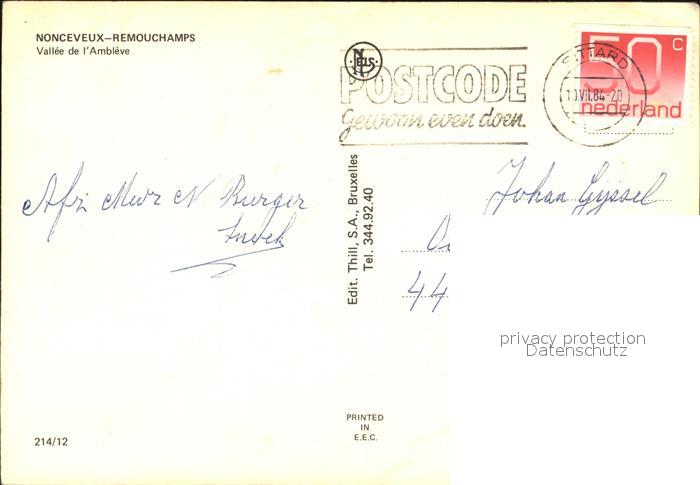 NONCEVEUX—REMOUCHAMPS
Vallée de l'Amblève
NELS
POSTCODE
Gewoon even doen.
SITTARD
10.VII.84-20
50 c
nederland
Afz Mevr N Burger
Johan Gijssel
44
Edit. Thill, S.A., Bruxelles
Tel. 344.92.40
privacy protection
Datenschutz
PRINTED
IN
E.E.C.
214/12